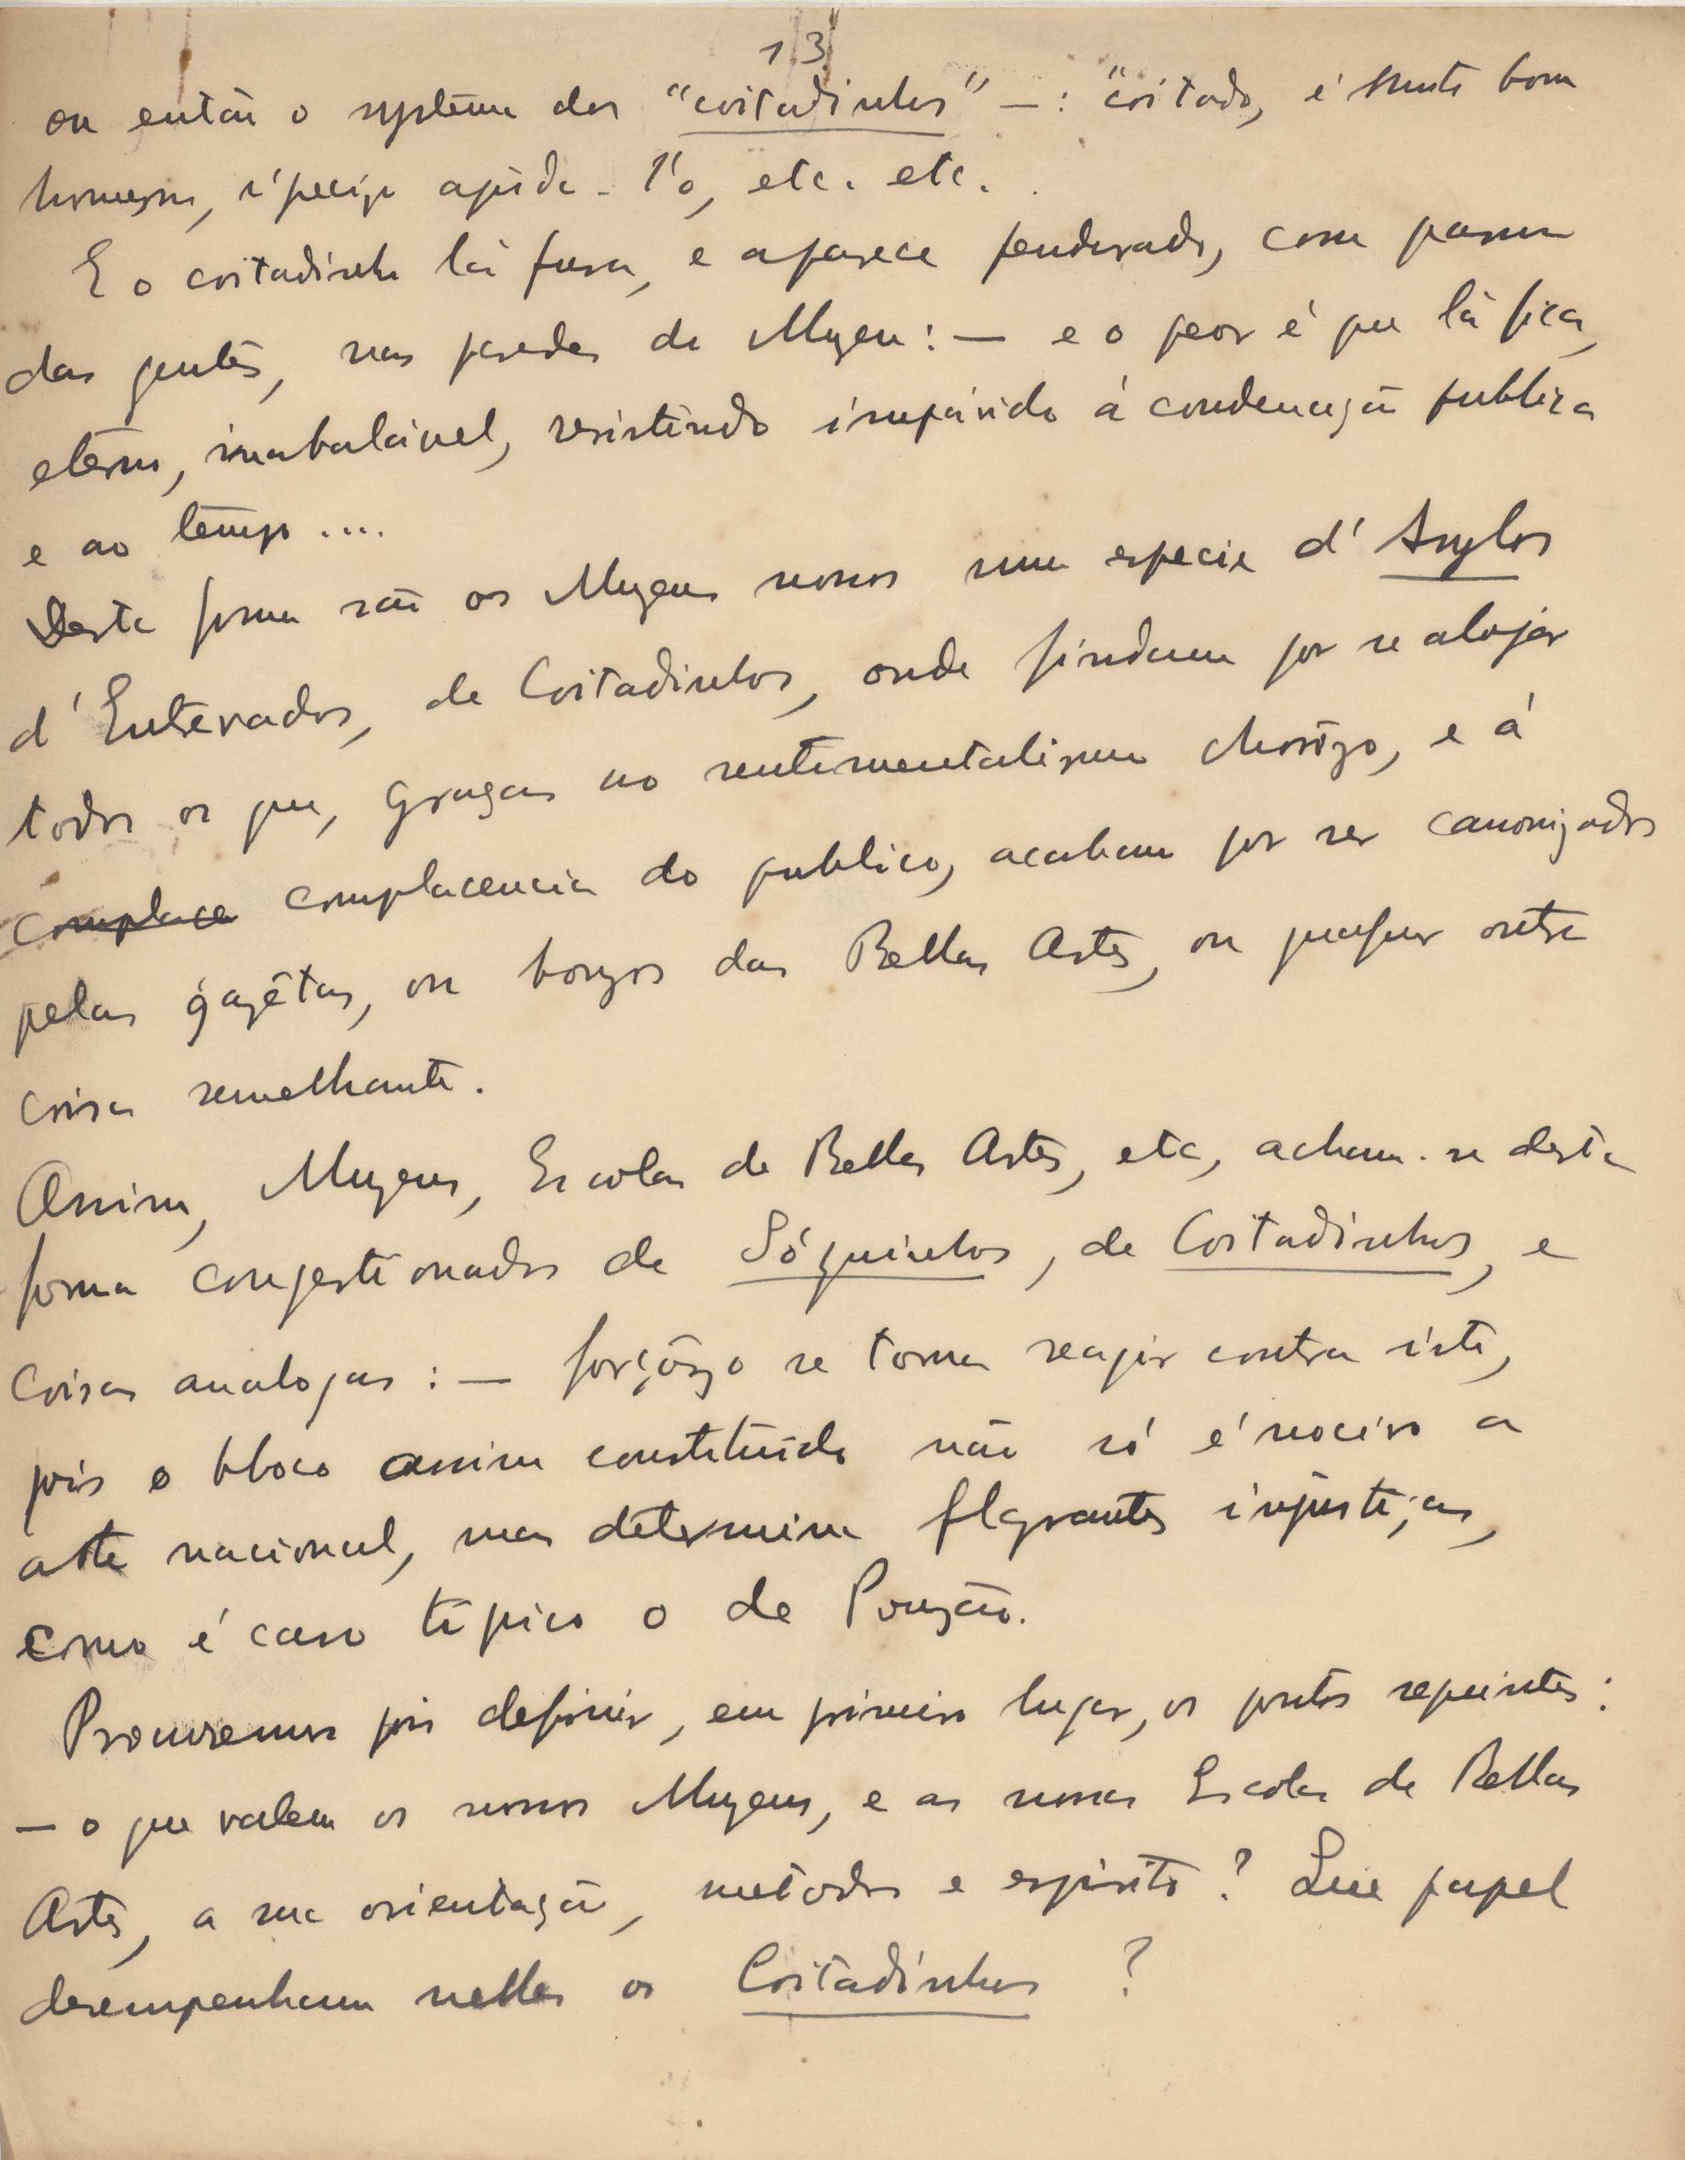 13
ou então o systema dos "coitadinhos" —: "coitado, é muito bom
homem, é preciso ajuda-l'o, etc. etc.
E o coitadinho lá fura, e aparece pendurado, com pasmo
das gentes, nas paredes do Muzeu: — e o peor é que lá fica,
eterno, inabalável, resistindo impávido á condenação publica
e ao tempo....
Desta forma são os Muzeus nossos uma especie d'Asylos
d'Entrevados, de Coitadinhos, onde findam por se alojar
todos os que, graças ao sentimentalismo chorôzo, e á
complace complacencia do publico, acabam por ser canonizados
pelas gazêtas, ou bonzos das Bellas Artes, ou qualquer outra
coisa semelhante.
Assim, Muzeus, Escolas de Bellas Artes, etc, acham-se desta
forma congestionados de Sóquinhos, de Coitadinhos, e
coisas analogas: — forçôzo se torna reagir contra isto,
pois o bloco assim constituido não só é nocivo a
arte nacional, mas determina flagrantes injustiças,
como é caso típico o de Pouzão.
Procuremos pois definir, em primeiro lugar, os pontos seguintes:
— o que valem os nossos Muzeus, e as nossas Escolas de Bellas
Artes, a sua orientação, metodos e espirito? Que papel
desempenham nelles os Coitadinhos ?